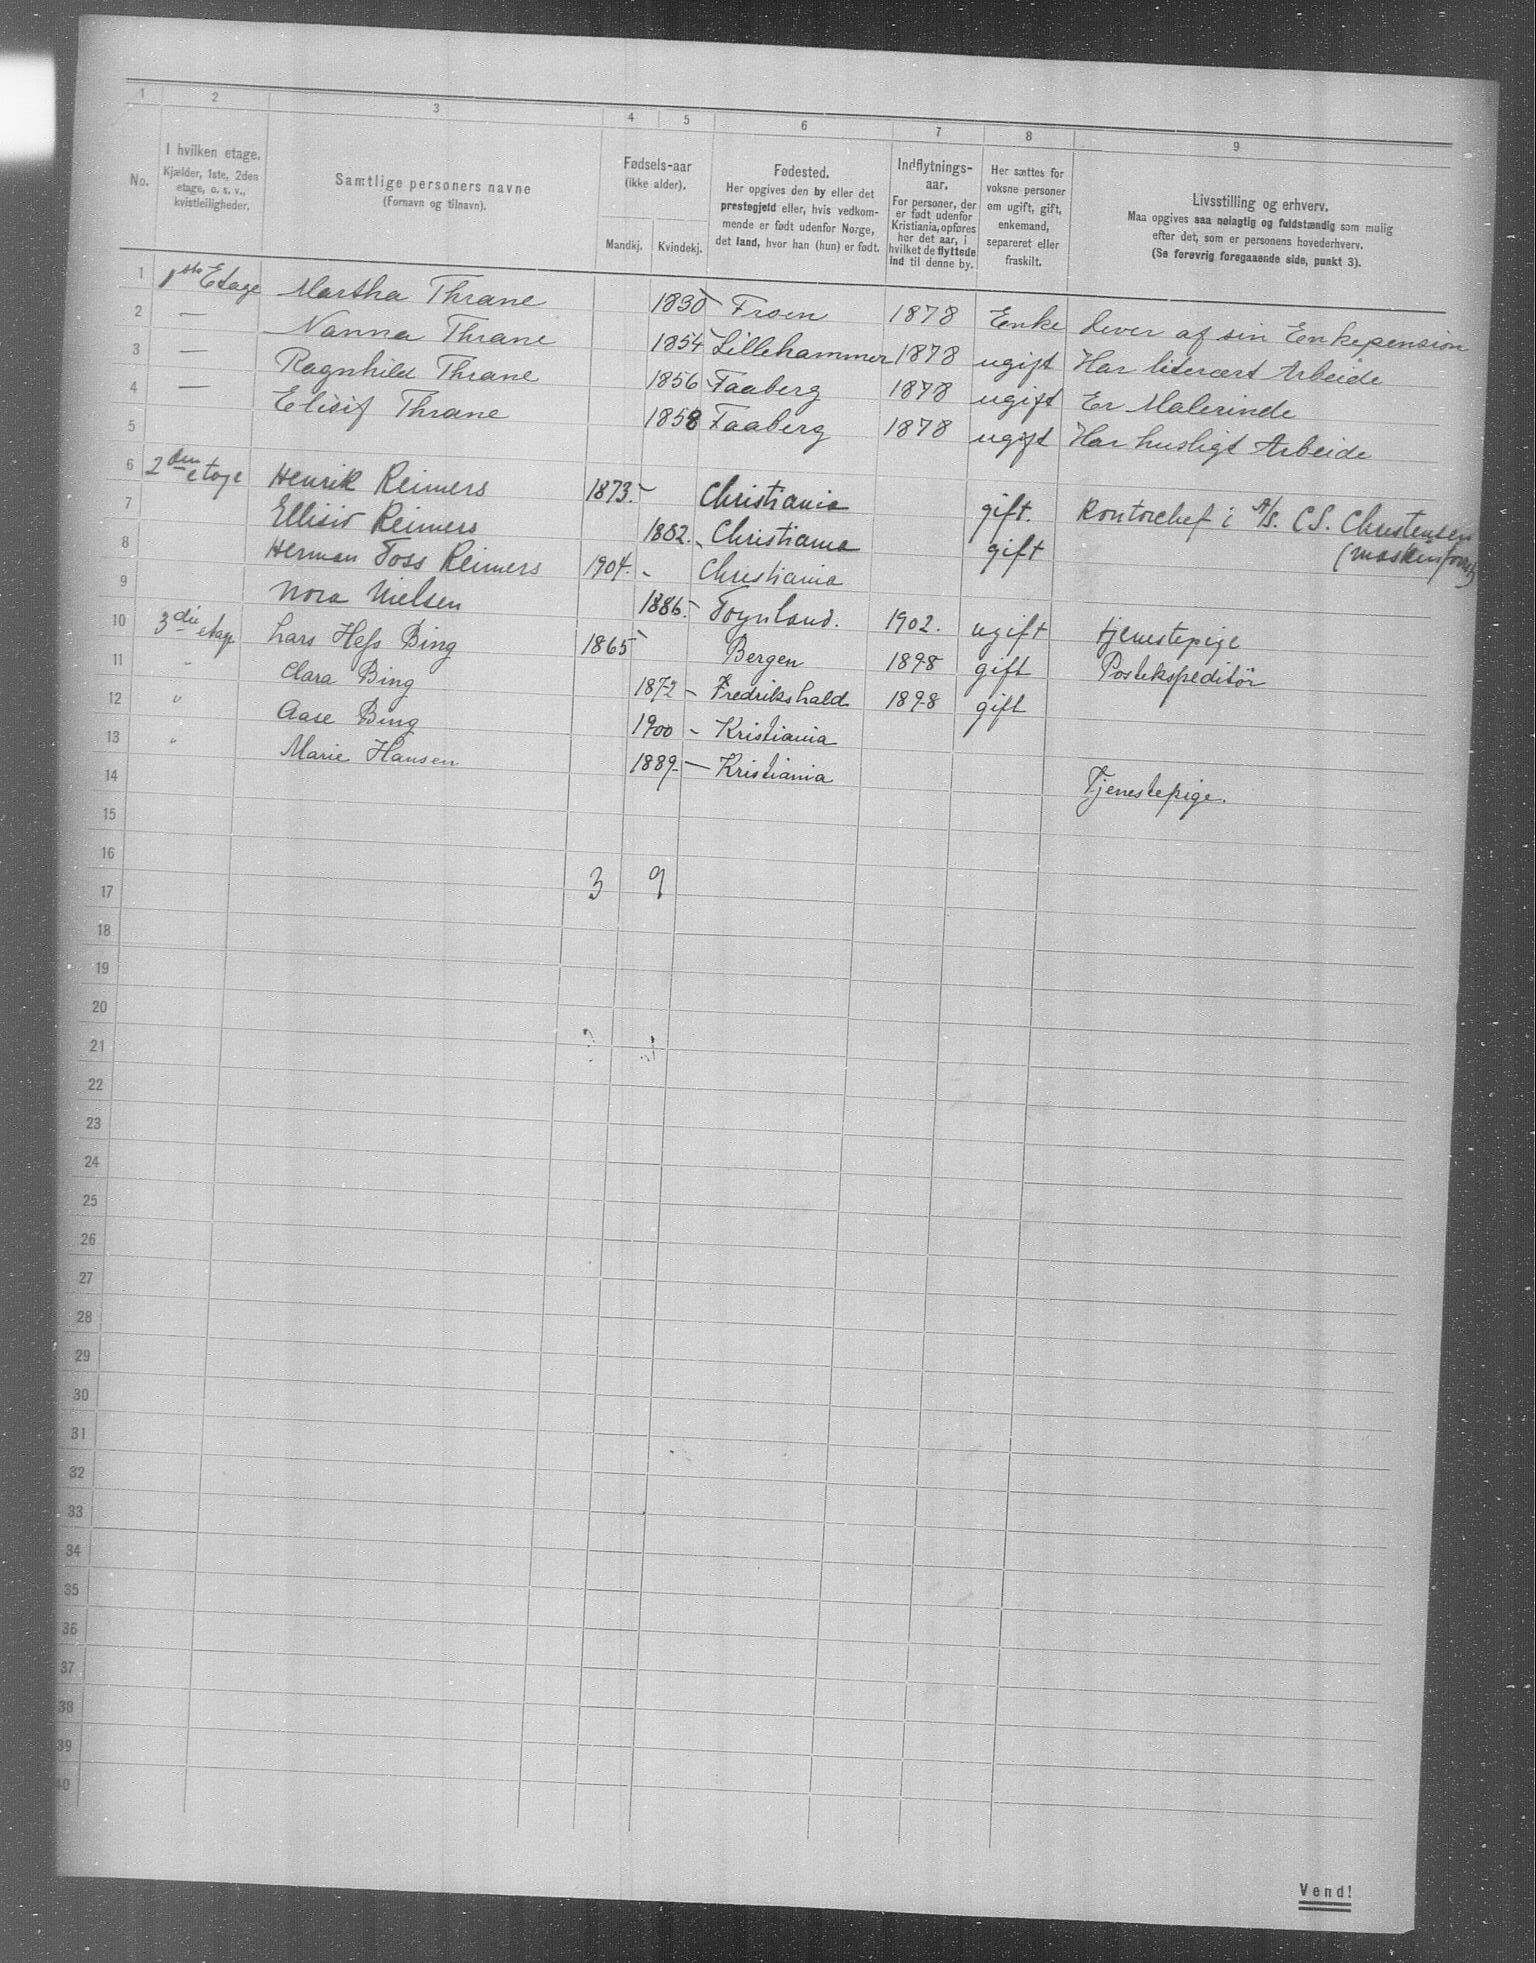 1 2 3 4 5 6 7 8 9
No. | I hvilken etage. Kjælder, 1ste, 2den etage, o. s. v., kvistleiligheder. | Samtlige personers navne (Fornavn og tilnavn). | Fødsels-aar (ikke alder). Mandkj. Kvindekj. | Fødested. Her opgives den by eller det prestegjeld eller, hvis vedkommende er født udenfor Norge, det land, hvor han (hun) er født. | Indflytnings-aar. For personer, der er født udenfor Kristiania, opføres her det aar, i hvilket de flyttede ind til denne by. | Her sættes for voksne personer om ugift, gift, enkemand, separeret eller fraskilt. | Livsstilling og erhverv. Maa opgives saa nøiagtig og fuldstændig som mulig efter det, som er personens hovederhverv. (Se forøvrig foregaaende side, punkt 3).
1 1ste Etage Martha Thrane 1830 Froen 1878 Enke Lever af sin Enkepension
2 — Nanna Thrane 1854 Lillehammer 1878 ugift Har literært Arbeide
3 — Ragnhild Thrane 1856 Faaberg 1878 ugift Er Malerinde
4 — Elisif Thrane 1858 Faaberg 1878 ugift Har husligt Arbeide
5
6 2den etage Henrik Reimers 1873. - Christiania gift. Kontorchef i A/S. C.S. Christensen
7 Ellisiv Reimers 1882. - Christiania gift
8 Herman Foss Reimers 1904. - Christiania
9 Nora Nielsen 1886. - 1902. ugift tjenestepige
10 3die etage Lars Hess Bing 1865 Bergen 1898 gift Postekspeditør
11 " Clara Bing 1872 - Fredrikshald 1898 gift
12 " Aase Bing 1900 - Kristiania
13 " Marie Hansen 1889 - Kristiania Tjenestepige.
14
15
16
17 3 9
18
19
20
21
22
23
24
25
26
27
28
29
30
31
32
33
34
35
36
37
38
39
40
Vend!